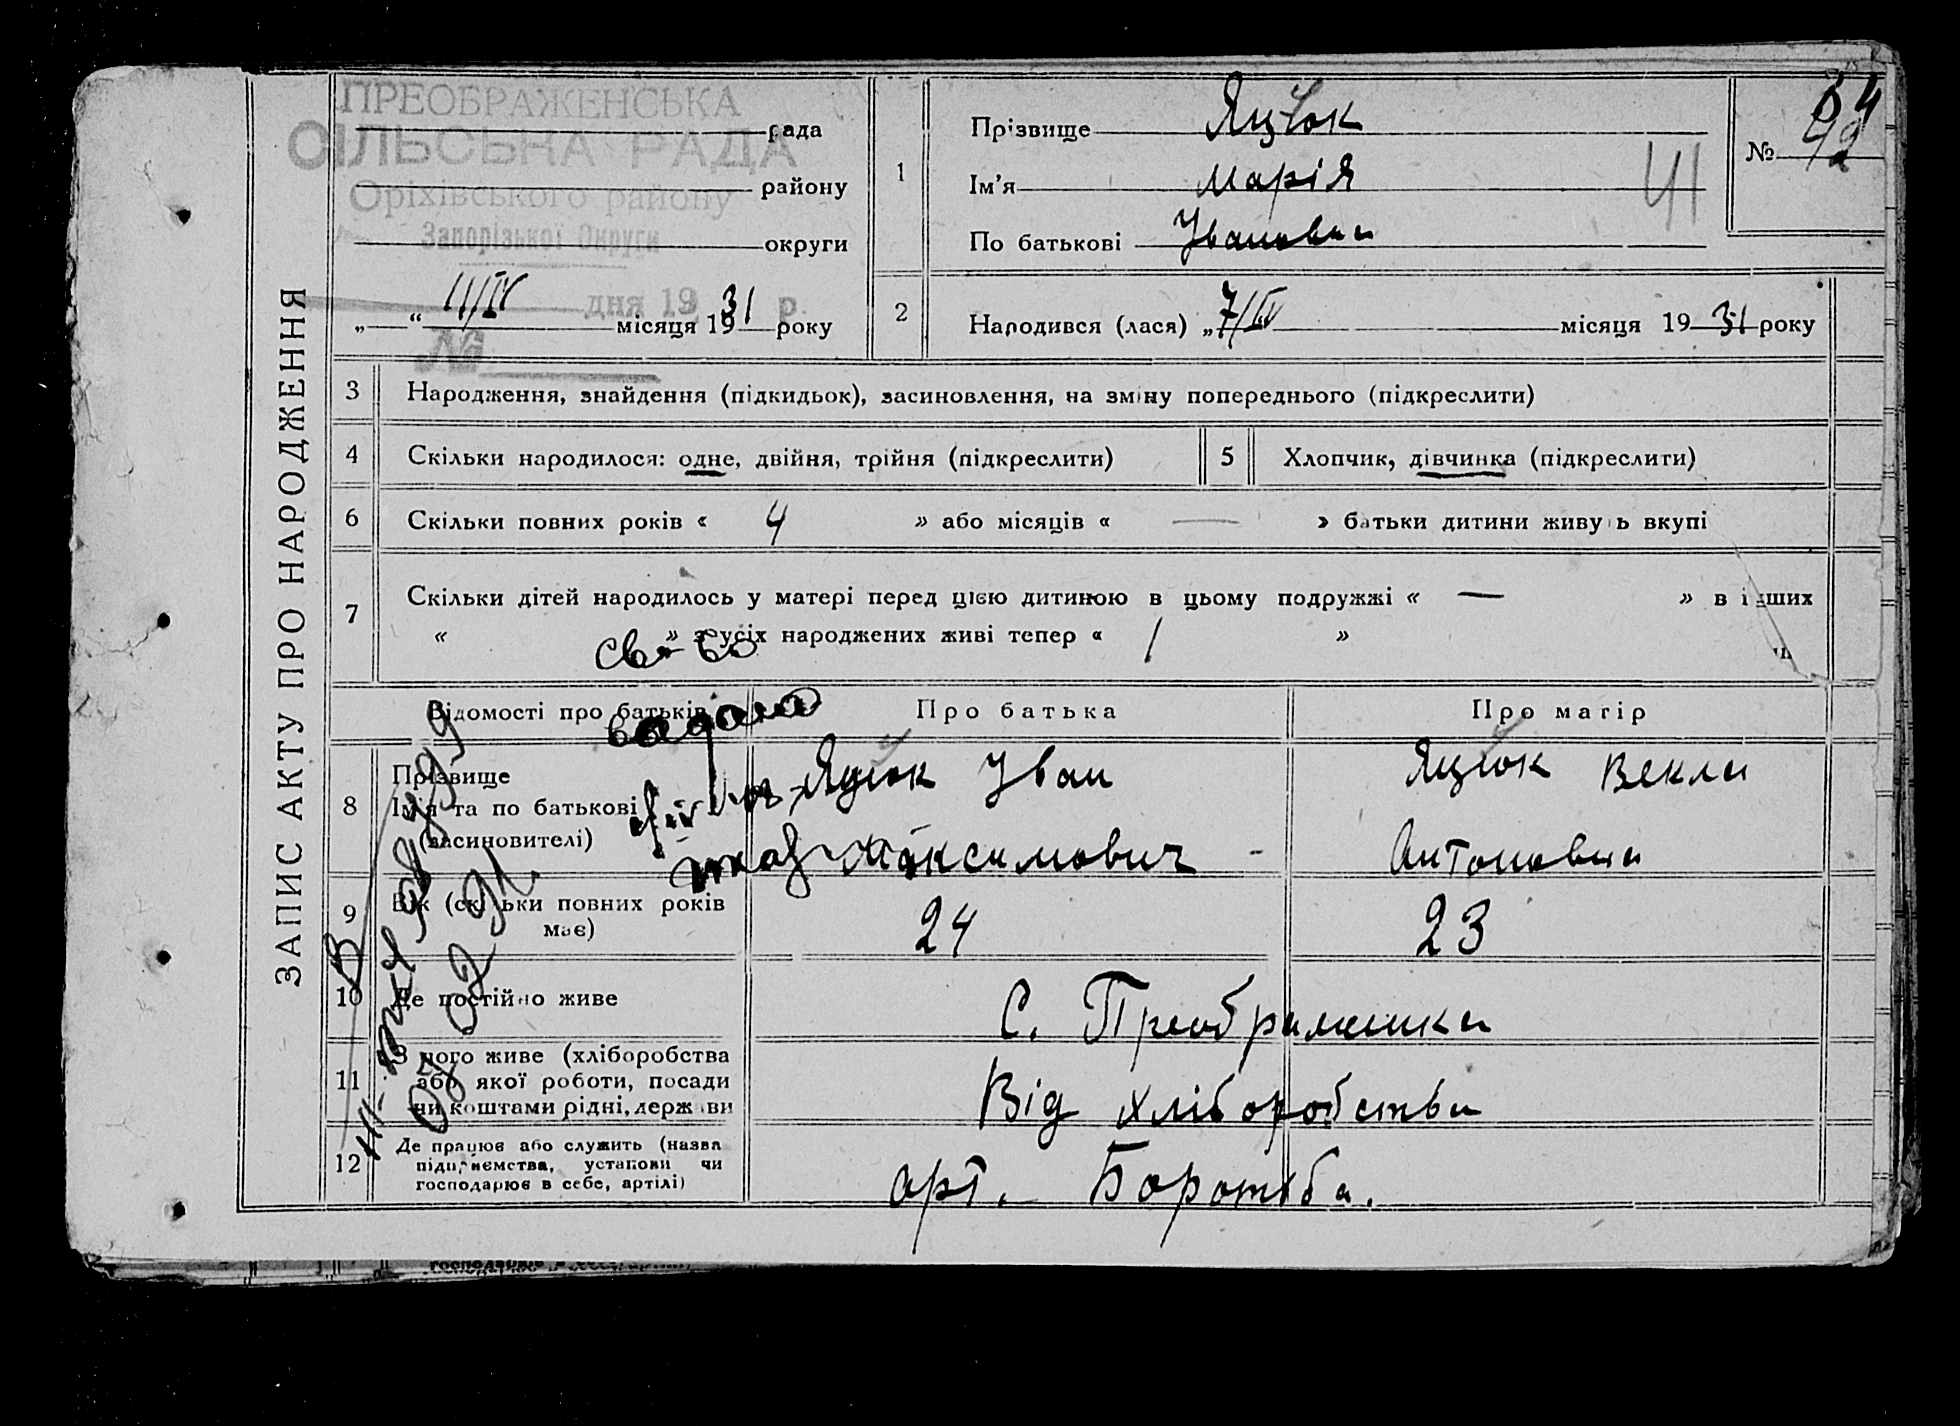 ЗАПИС АКТУ ПРО НАРОДЖЕННЯ
ПРЕОБРАЖЕНСЬКА
СІЛЬСЬКА РАДА
Оріхівського району
Запорізької Округи
дня 19 р.
№
рада
району
округи
„ “ 11/IV місяця 1931 року
1
Прізвище Яцюк
Ім’я Марія
По батькові Івановна
41
№ 42
54
2
Народився (лася) „ 7/IV місяця 1931 року
3 Народження, знайдення (підкидьок), засиновлення, на зміну попереднього (підкреслити)
4 Скільки народилося: одне, двійня, трійня (підкреслити)
5 Хлопчик, дівчинка (підкреслити)
6 Скільки повних років « 4 » або місяців « — » батьки дитини живуть вкупі
7 Скільки дітей народилось у матері перед цією дитиною в цьому подружжі « — » в інших
« » з усіх народжених живі тепер « 1 »
св-во
Відомості про батьків Про батька Про матір
8 Прізвище
Ім’я та по батькові
(засиновителі)
Яцюк Іван
Максимович
Яцюк Векла
Антоновна
9 Вік (скільки повних років має) 24 23
10 Де постійно живе С. Преображенка
11 З чого живе (хліборобства
або якої роботи, посади
чи коштами рідні, держави
Від хліборобства
12 Де працює або служить (назва
підприємства, установи чи
господарює в себе, артілі)
арт. Боротьба.